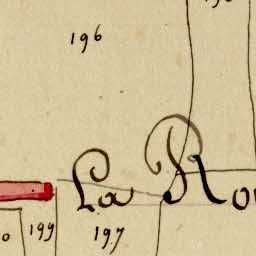 196
La Rou
199
197